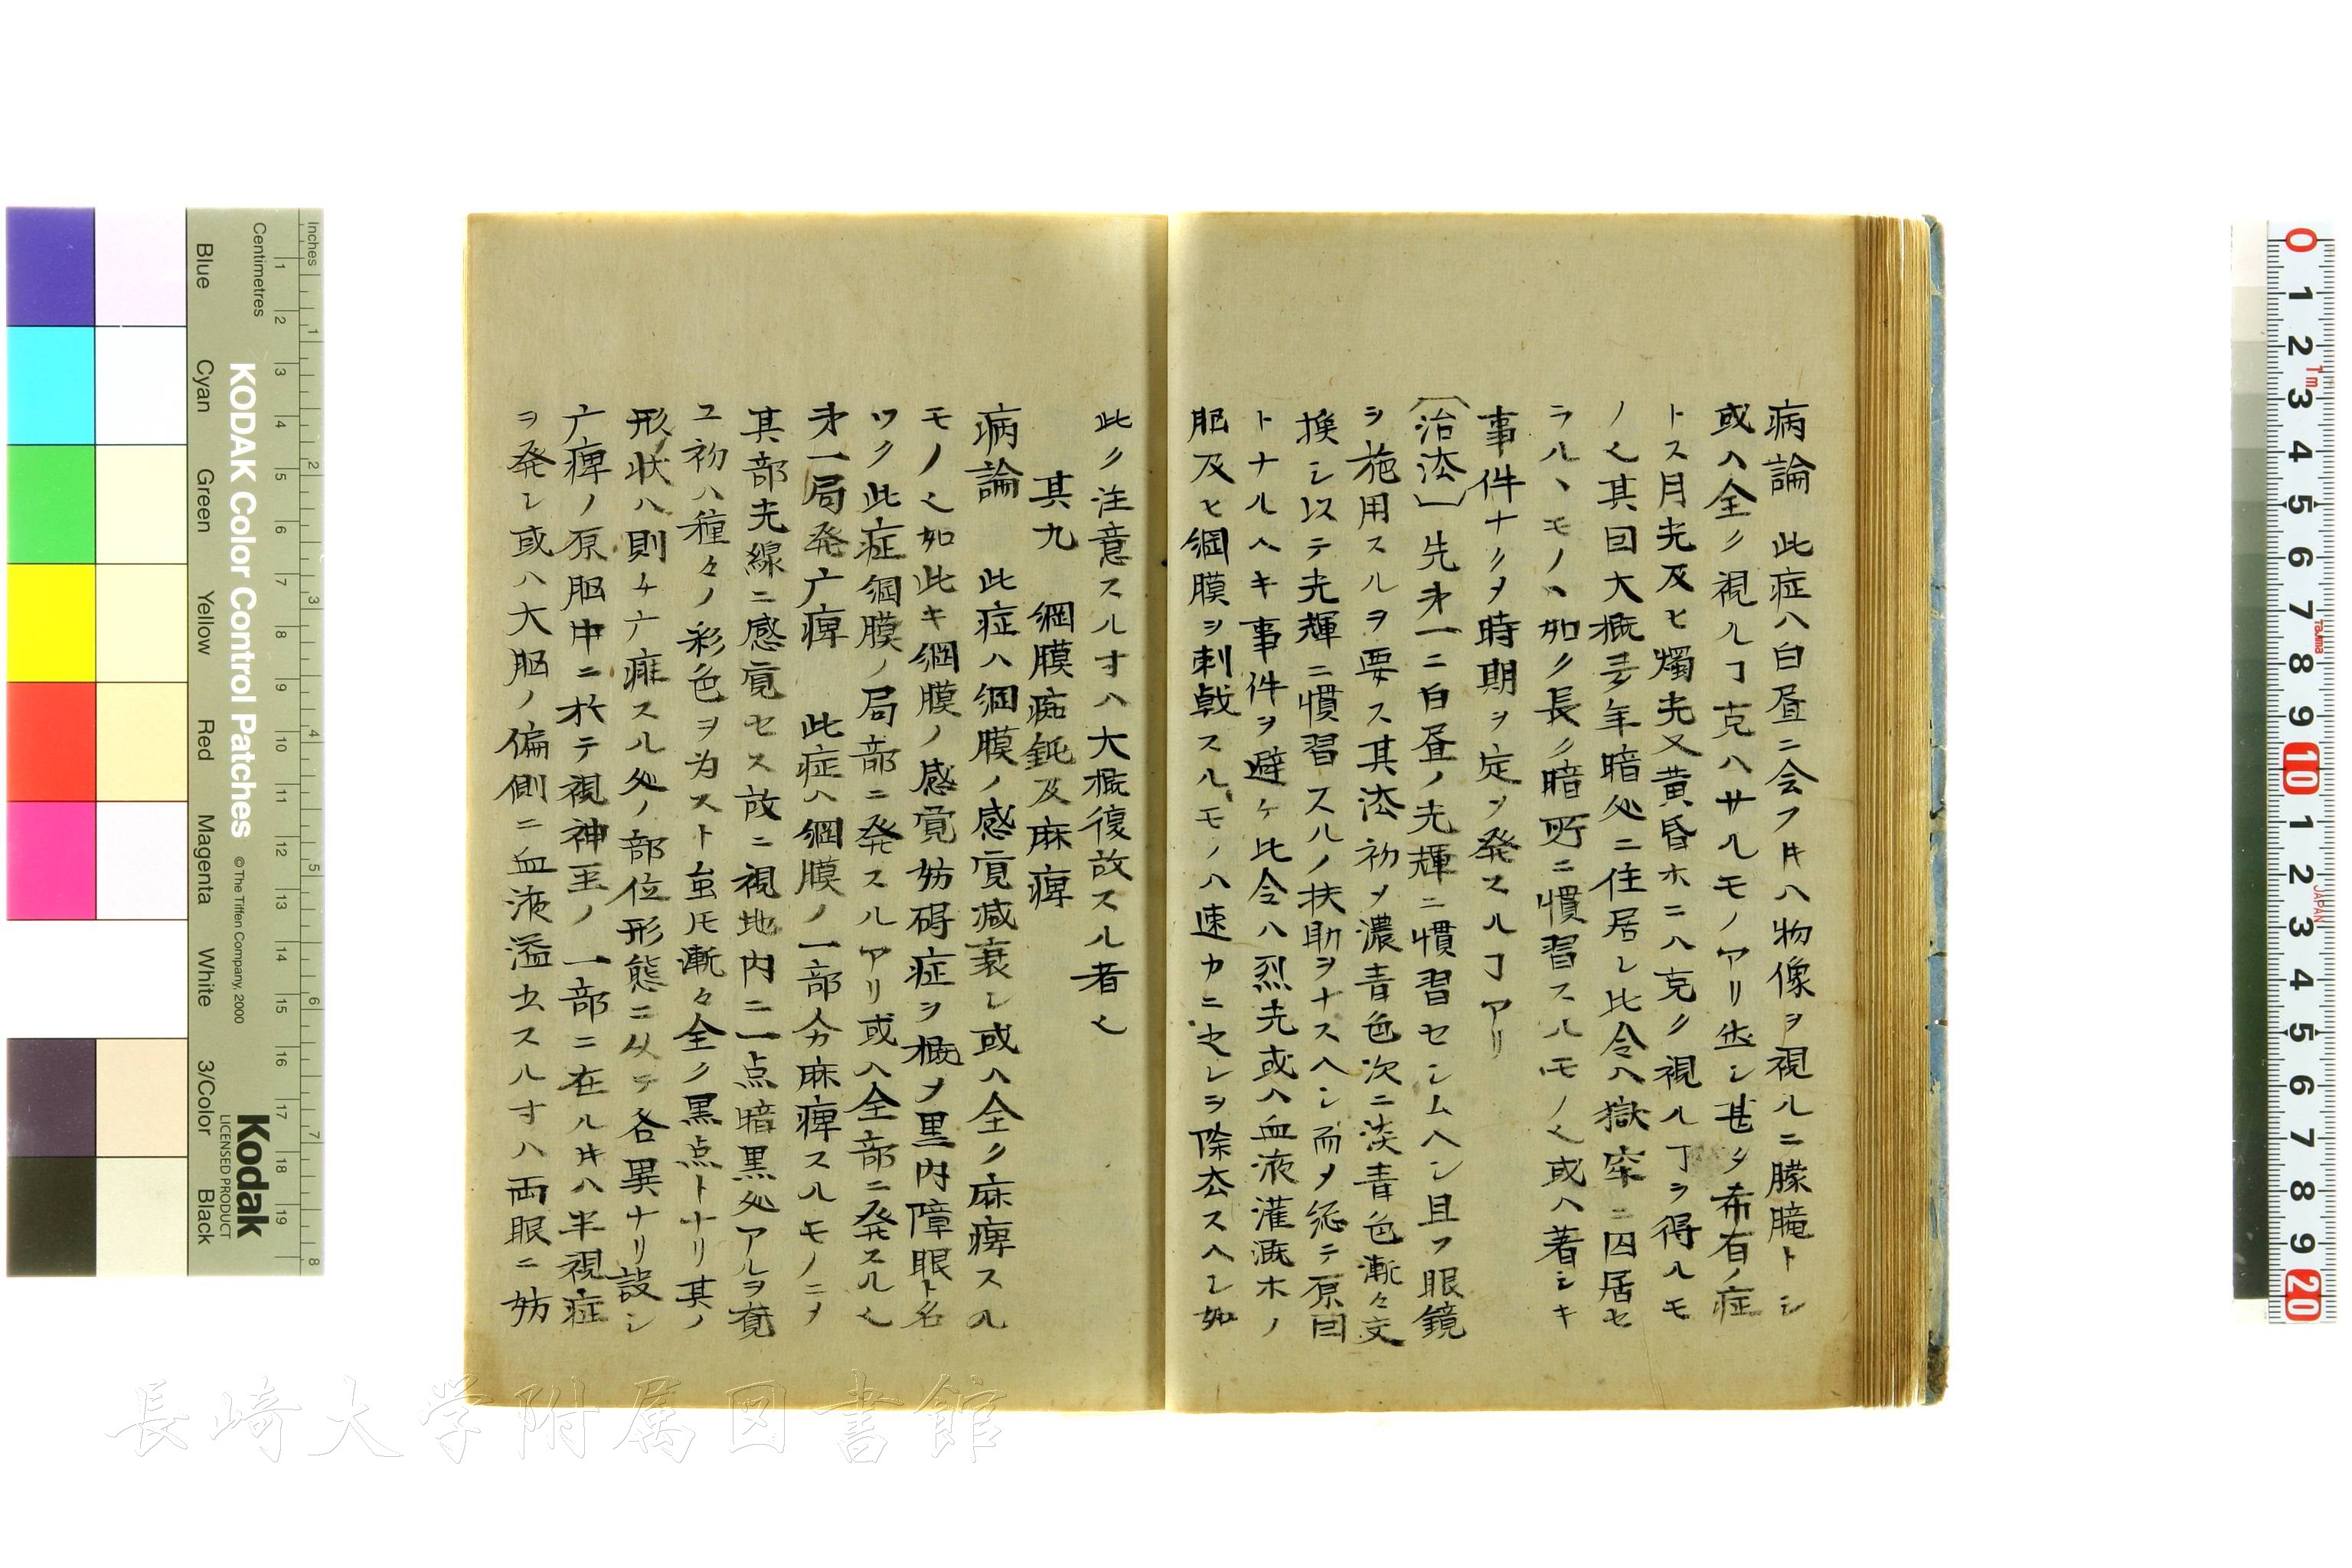 病論　此症ハ白昼ニ会フ𪜈ハ物像ヲ視ルニ朦朧トシ
或ハ全ク視ルヿ克ハサルモノアリ 甚タ希有ノ症
トス月光及ヒ燭光又黄昏ホニハ克ク視ルヿヲ得ルモ
ノ乀其因大概 年暗処ニ住居シ比令ハ獄牢ニ囚居セ
ラルヽモノヽ如ク長ク暗所ニ慣習スルモノ乀或ハ著シキ
事件ナクヲ時期ヲ定ヲ発スルヿアリ
〔治法〕先才一ニ白昼ノ光輝ニ慣習セシムヘシ且ツ眼鏡
ヲ施用スルヲ要ス其法初メ濃青色次ニ淡青色漸々交
換シ以テ光輝ニ慣習スルノ扶助ヲナスヘシ而メ 総テ原因
トナルヘキ事件ヲ避ケ比令ハ烈光或ハ血液灌漑ホノ
肥及ヒ網膜ヲ刺戟スルモノハ速カニ之レヲ除去スヘシ如
此ク注意スル寸ハ大概復故スル者乀
其九　網膜痴鈍及麻痺
病論　此症ハ網膜ノ感覚減衰シ或ハ全ク麻痺スル
モノ乀如此キ網膜ノ感覚妨碍症ヲ概メ黒内障眼ト名
ツク此症網膜ノ局部ニ発スルアリ或ハ全部ニ発スル乀
才一局発广痺　此症ハ網膜ノ一部分麻痺スルモノニヲ
其部光線ニ感覚セス故ニ視地内ニ一点暗黒処アルヲ覚
ユ初ハ種々ノ彩色ヲ為スト 𪜈漸々全ク黒点トナリ其ノ
形状ハ則チ广痺スル処ノ部位形態ニ从テ各異ナリ設シ
广痺ノ原脳中ニ於テ視神 ノ一部ニ在ル𪜈ハ半視症
ヲ発シ或ハ大脳ノ偏側ニ血液溢出スル寸ハ両眼ニ妨
Inches
Centimetres
KODAK Color Control Patches
© The Tiffen Company, 2000
Kodak
LICENSED PRODUCT
Blue
Cyan
Green
Yellow
Red
Magenta
White
3/Color
Black
長崎大学附属図書館